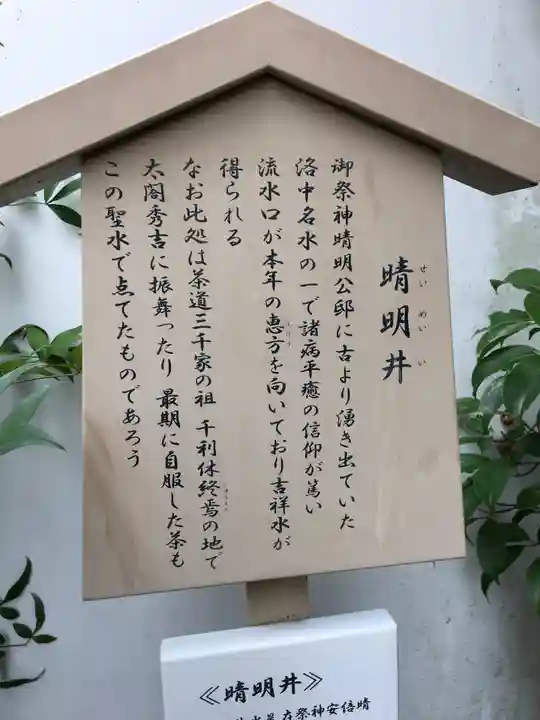 晴明井
せいめいい
御祭神晴明公邸に古より湧き出ていた
洛中名水の一で諸病平癒の信仰が篤い
流水口が本年の恵方を向いており吉祥水が
得られる
なお此処は茶道三千家の祖 千利休終焉の地で
太閤秀吉に振舞ったり 最期に自服した茶も
この聖水で点てたものであろう
≪晴明井≫